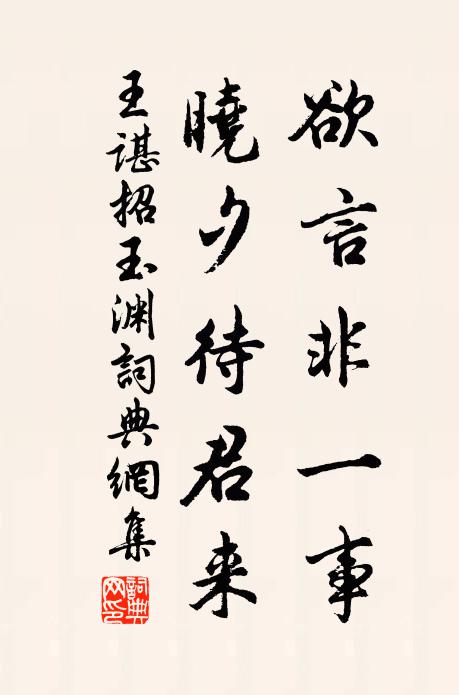 欲言非一事
曉夕待君来
王諶招玉淵詞典網集
詞典網印